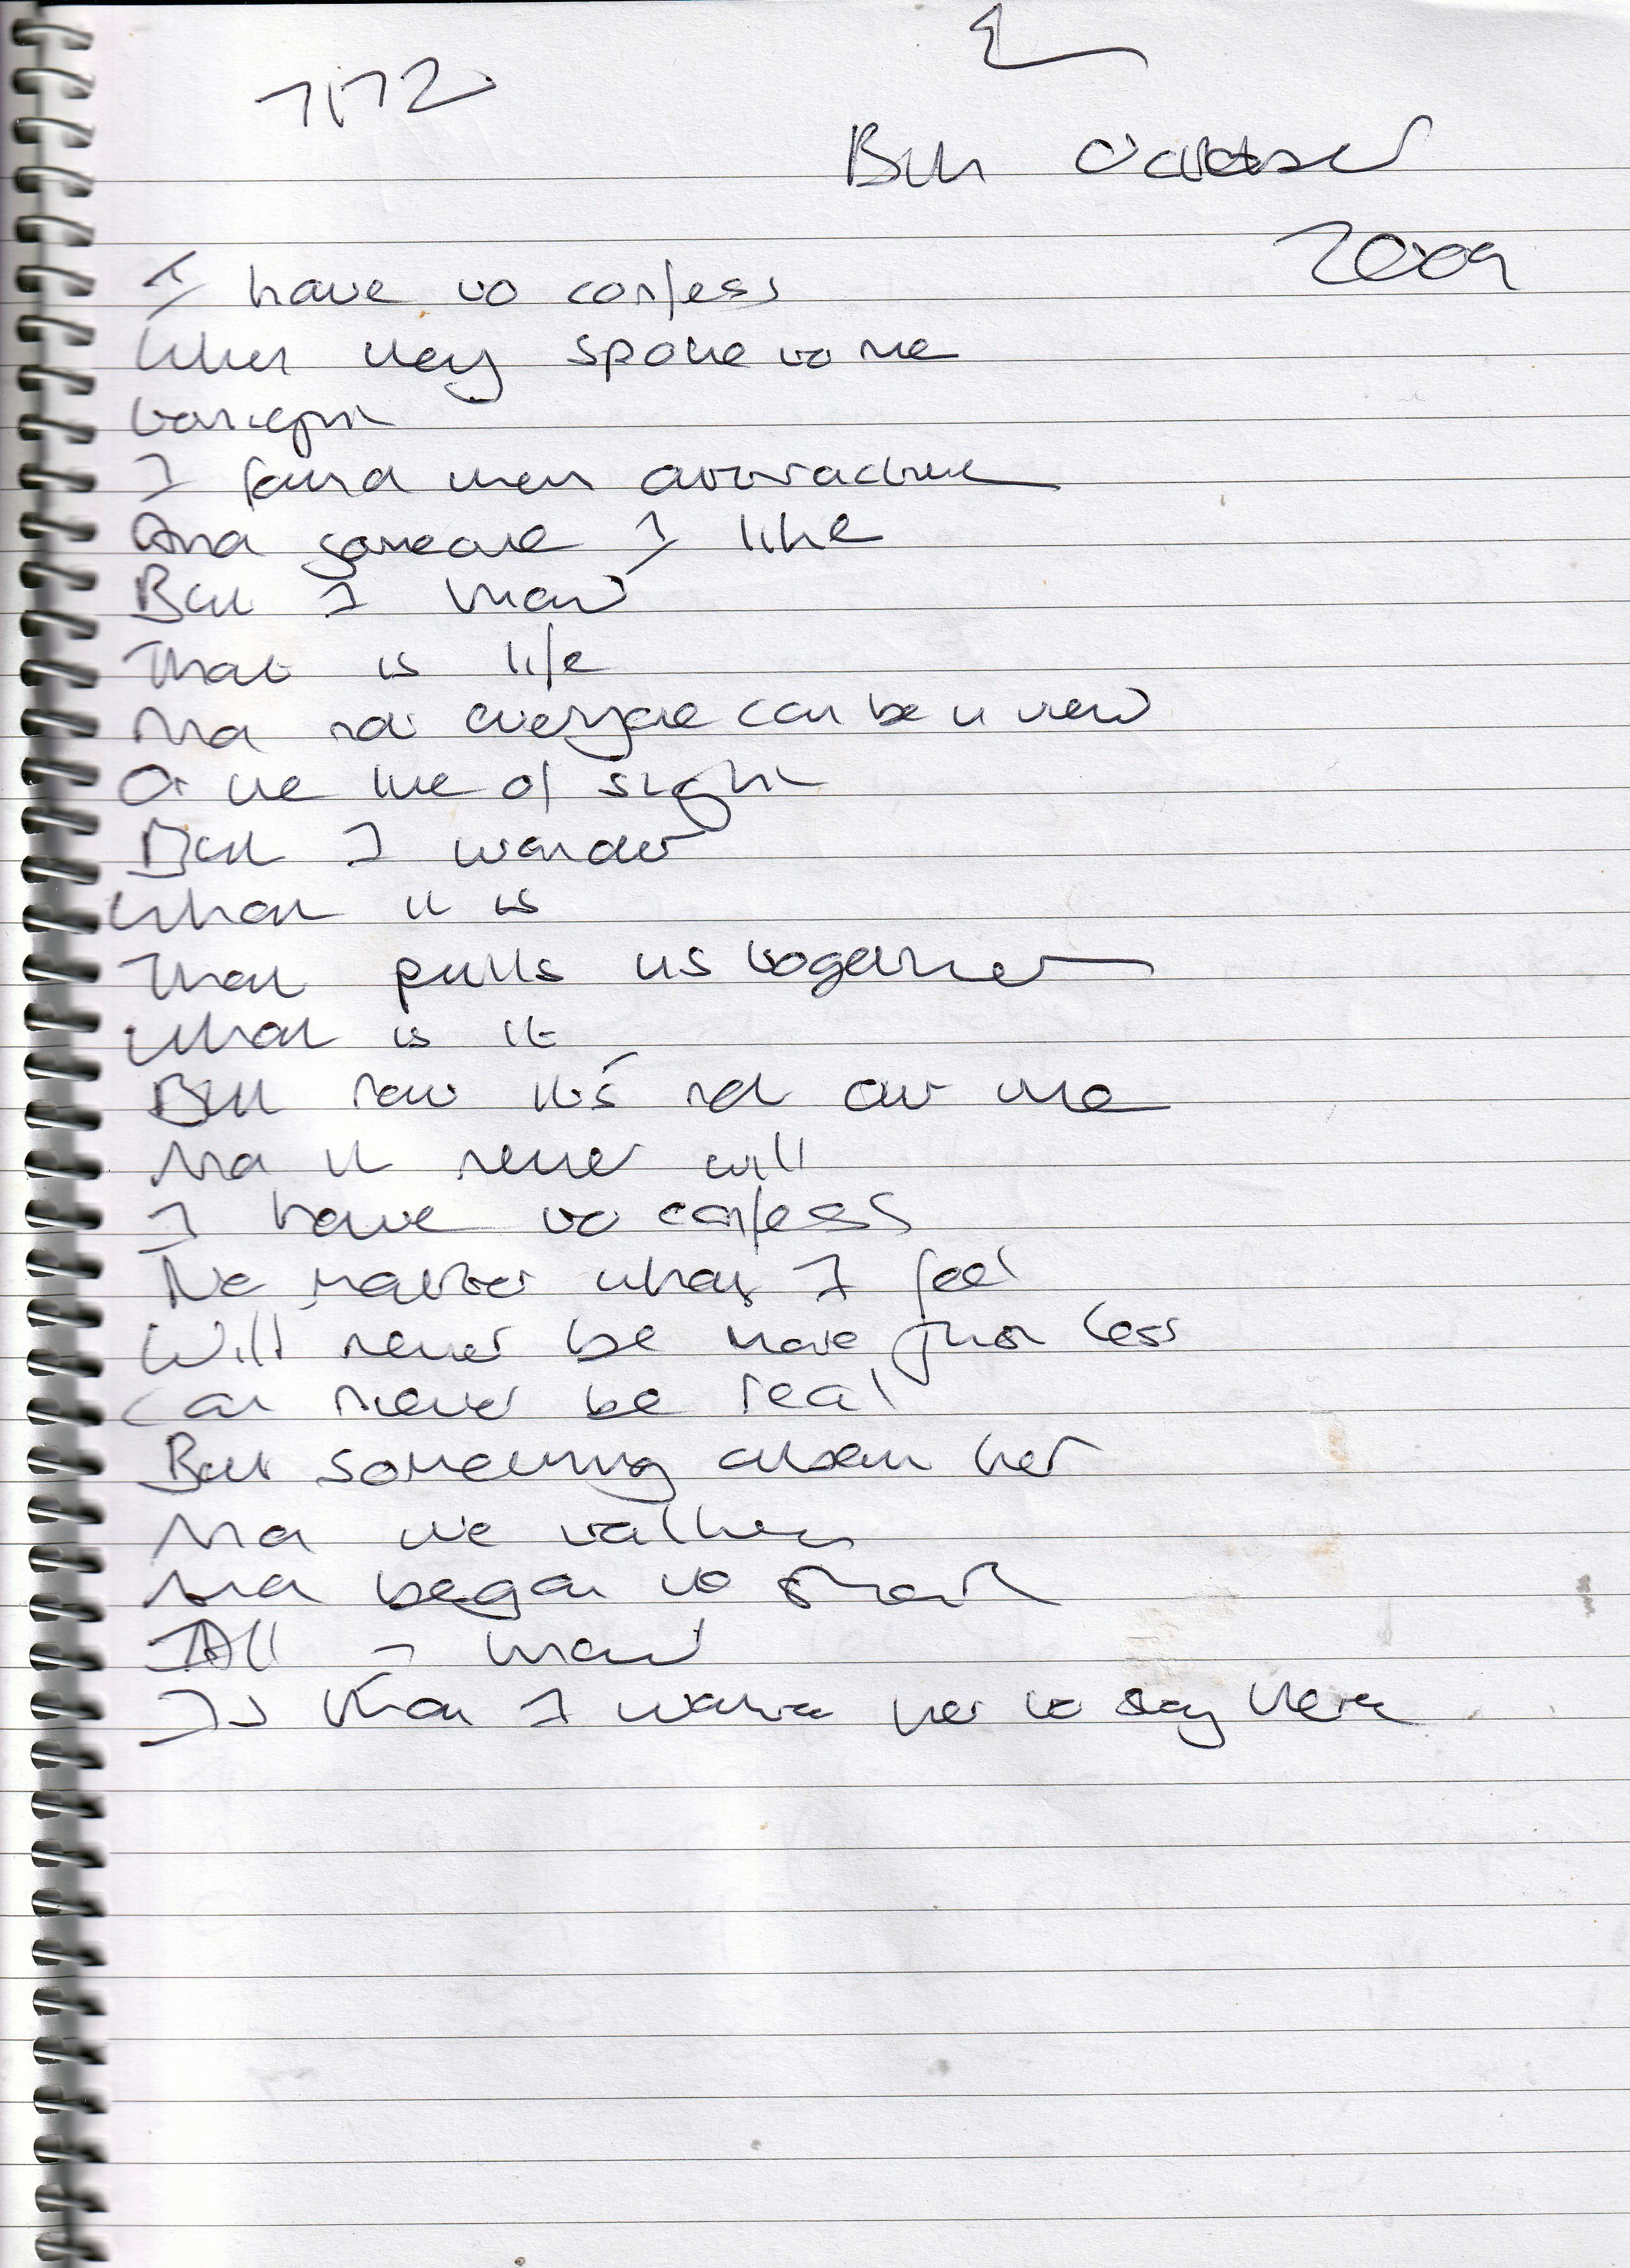 1172
8th October
2009
I have to confess
When they spoke to me
tonight
I found them attractive
And someone I like
But I know
That is life
And not everyone can be in view
Or the line of sight
But I wonder
What it is
That pulls us together
What is it
But now it's not at me
And it never will
I have to confess
No matter what I feel
Will never be more than less
Can never be real
But something about her
And we talked
And began to
All I know
Is that I wanted her to stay here